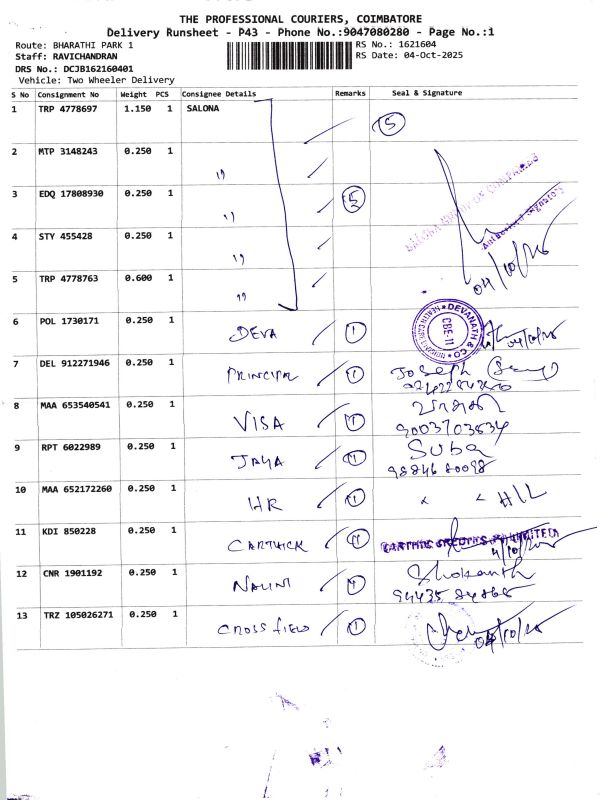 THE PROFESSIONAL COURIERS, COIMBATORE
Delivery Runsheet - P43 - Phone No.:9047080280 - Page No.:1
Route: BHARATHI PARK 1
RS No.: 1621604
Staff: RAVICHANDRAN
RS Date: 04-Oct-2025
DRS No.: DCJB162160401
Vehicle: Two Wheeler Delivery
S No Consignment No Weight PCS Consignee Details Remarks Seal & Signature
1 TRP 4778697 1.150 1 SALONA 5
2 MTP 3148243 0.250 1 ''
3 EDQ 17808930 0.250 1 '' 5
4 STY 455428 0.250 1 ''
Authorised Signatory
5 TRP 4778763 0.600 1 '' 04/10/25
6 POL 1730171 0.250 1 DEVA 1 DEVANATH & CO CBE-11
7 DEL 912271946 0.250 1 PRINCIPAL 1 Joseph
8 MAA 653540541 0.250 1 VISA 1
9003703634
9 RPT 6022989 0.250 1 JAYA 1 Suba
98846 80098
10 MAA 652172260 0.250 1 HR 1 H/L
11 KDI 850228 0.250 1 CARTHICK 1 4/10/25
12 CNR 1901192 0.250 1 NALINI 1
13 TRZ 105026271 0.250 1 CROSSFIELD 1 04/10/25